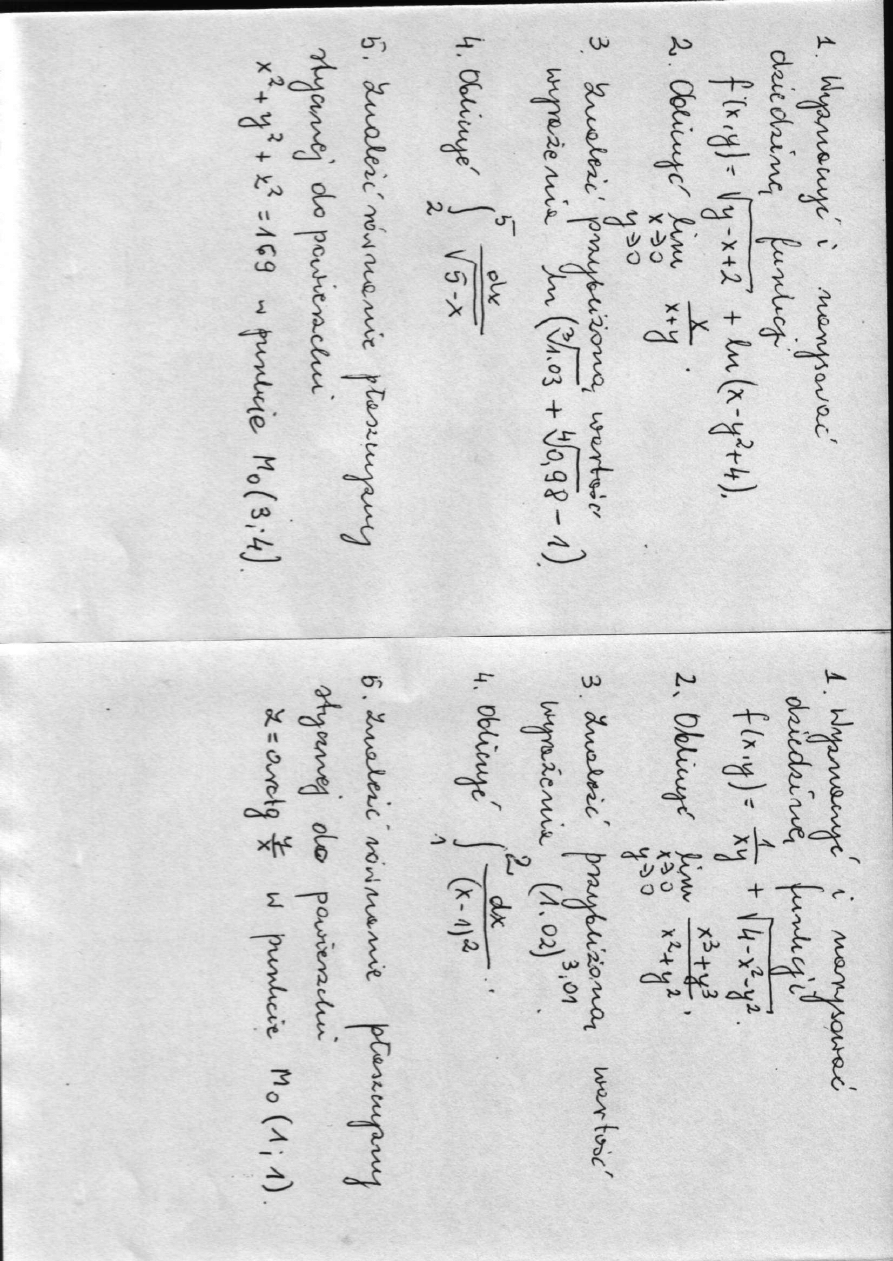 1. Wyznaczyć i narysować
dziedzinę funkcji
f(x,y) = √(y-x+2) + ln(x-y²+4).
2. Obliczyć lim x→0 y→0 x/(x+y).
3 Znaleźć przybliżoną wartość
wyrażenia ln(∛1.03 + ∜0,98 - 1).
4. Obliczyć ∫₂⁵ dx/√(5-x)
5. Znaleźć równanie płaszczyzny
stycznej do powierzchni
x² + y² + z² = 169 w punkcie M₀(3;4).
1. Wyznaczyć i narysować
dziedzinę funkcji
f(x,y) = 1/xy + √(4-x²-y²).
2. Obliczyć lim x→0 y→0 (x³+y³)/(x²+y²).
3. Znaleźć przybliżoną wartość
wyrażenia (1.02)^3,01.
4. Obliczyć ∫₁² dx/(x-1)².
5. Znaleźć równanie płaszczyzny
stycznej do powierzchni
z = arctg y/x w punkcie M₀(1;1).